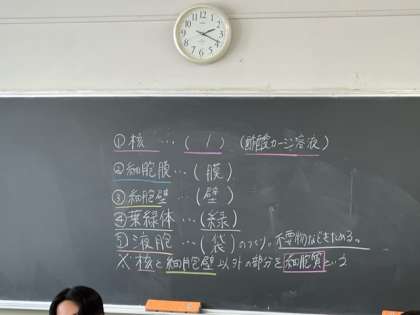 ①核 …( 1 ) (酢酸カーミン溶液)
②細胞膜…(膜)
③細胞壁…(壁)
④葉緑体…(緑)
⑤液胞…(袋)のつくり。不要物などをためる。
※核と細胞壁以外の部分を細胞質という